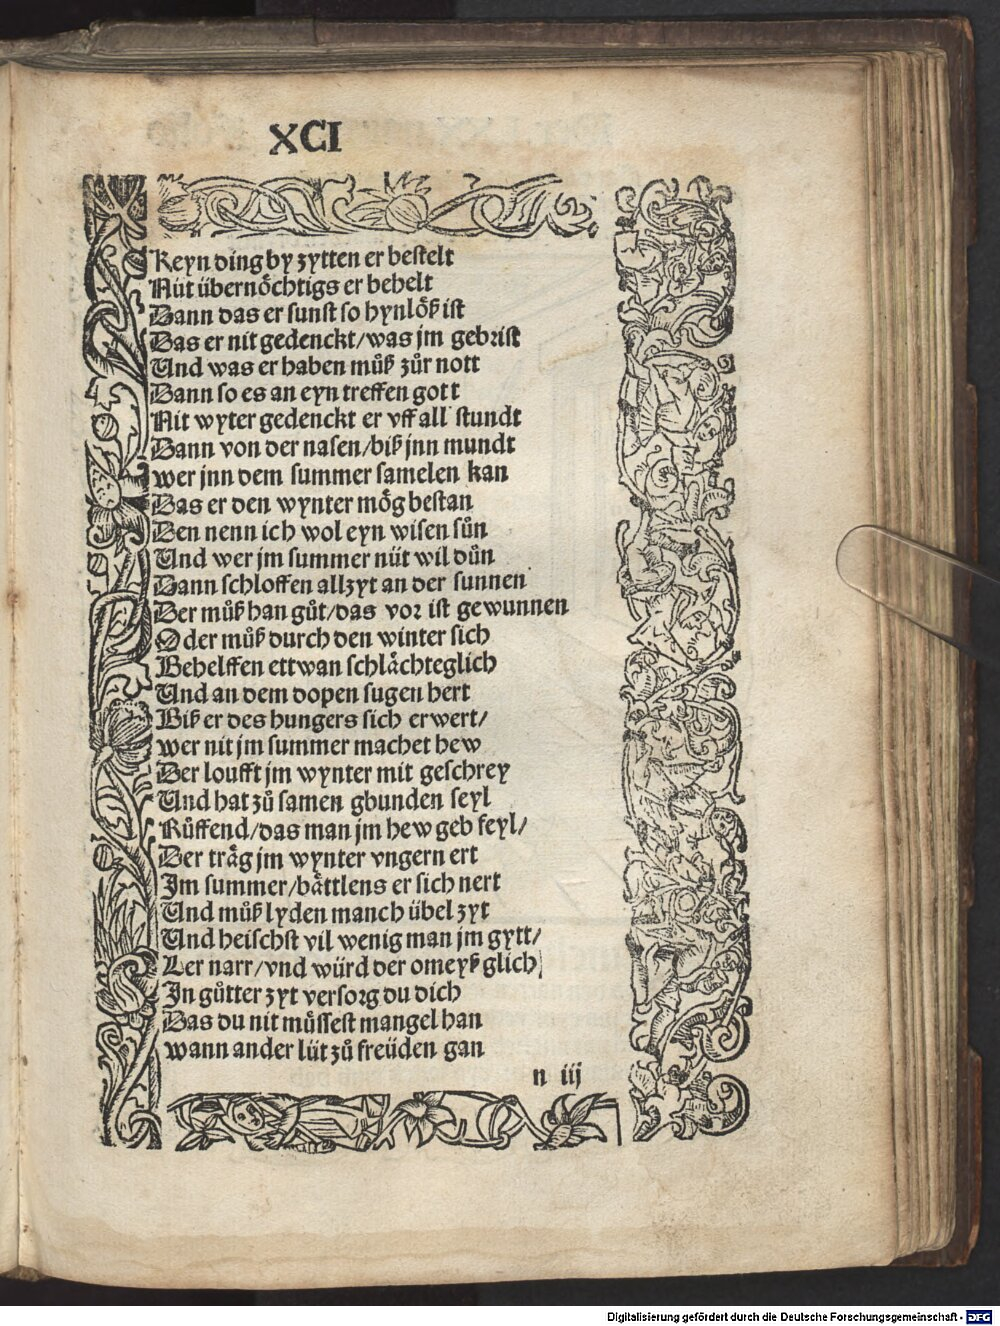 XCI
Keyn ding by zytten er bestelt
Nüt übernöchtigs er behelt
Dann das er sunst so hynlöß ist
Das er nit gedenckt/was jm gebrist
Und was er haben můß zůr nott
Dann so es an eyn treffen gott
Nit wyter gedenckt er vff all stundt
Dann von der nasen/biß jnn mundt
wer jnn dem summer samelen kan
Das er den wynter mög bestan
Den nenn ich wol eyn wisen sůn
Und wer jm summer nüt wil důn
Dann schloffen allzyt an der sunnen
Der můß han gůt/das vor ist gewunnen
Oder můß durch den winter sich
Behelffen ettwan schlächteglich
Und an dem dopen sugen hert
Biß er des hungers sich erwert/
wer nit jm summer machet hew
Der loufft jm wynter mit geschrey
Und hat zů samen gbunden seyl
Růffend/das man jm hew geb feyl/
Der träg jm wynter vngern ert
Jm summer/bättlens er sich nert
Und můß lyden manch übel zyt
Und heischst vil wenig man jm gytt/
Ler narr/vnd würd der omeyß glich
Jn gůtter zyt versorg du dich
Das du nit müssest mangel han
wann ander lüt zů freüden gan
n iij
Digitalisierung gefördert durch die Deutsche Forschungsgemeinschaft - DFG